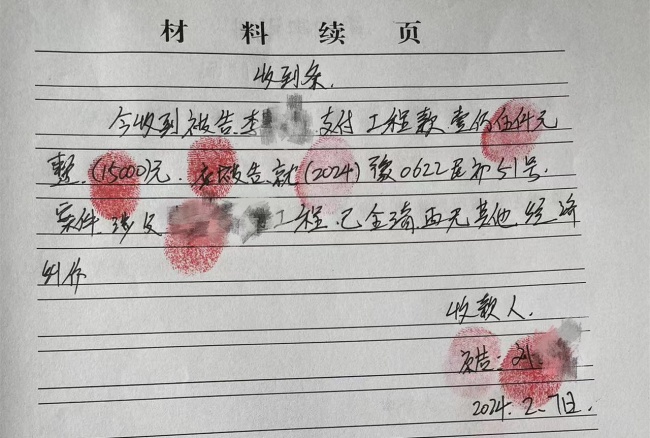 材料续页
收到条.
今收到被告.李 支付工程款.壹万伍仟元
整.(15000)元.原被告就(2024)豫0622民初51号.
案件.涉及 工程.已全清.再无其他经济
纠纷
收款人.
原告:刘
2024.2.7日.